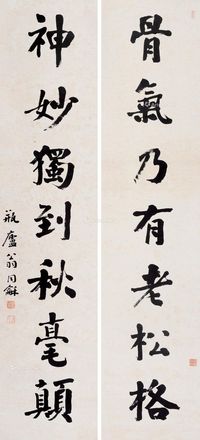 骨氣乃有老松格
神妙獨到秋毫顛
瓶廬翁同龢